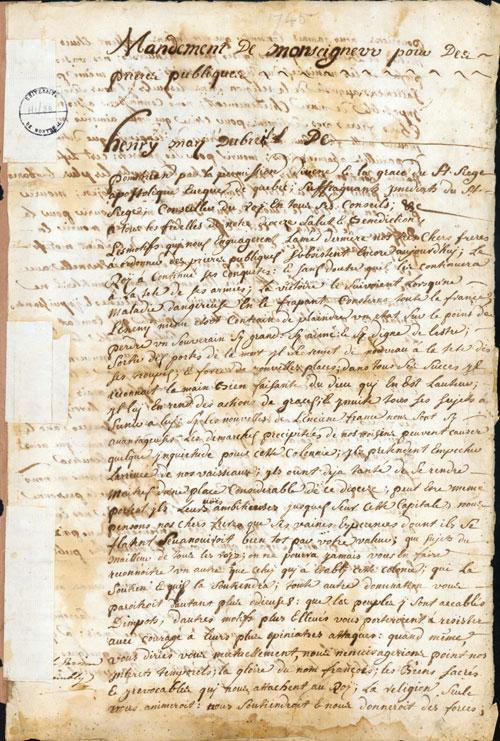 1745
Mandement De monseigneur pour Des
prieres publiques
UNIVERSITÉ
DE MONTRÉAL
henry mary Dubreil De
pontbriant par la permission Divine & la grace du St. Siege
apostolique Eveque de quebec; Suffraguant immediat du St.
Siege; Conseiller du Roj En tous Ses Conseils; &c
a tous les fidelles de notre Dioceze Salut & Benediction
Les motifs qui nous Engagerent Lamé derniere nos tres Chers freres
a ordonner des prieres publiques Subsistent Encore aujourdhuj; Le
Roj a Continué ses Conquetes; & sans doutte quil les continuera
a la tete de ses armées; la victoire le Suivoit lorsqune
Maladie dangereuse En le frapant Consterna toute la france
Lenemy meme etoit Contraint de plaindre un etat Sur le point de
perdre un Souverain Sj grand Sj aimé & Sj digne de lestre;
Sortie des portes de la mort jl parut de nouveau a la tete des
ses troupes; & force de nouvelles places; dans tous Ses Succes jl
reconnoit la main Bien faisante du dieu qui En Est Lauteur;
jl luj En rend des actions de graces & jnvite tous ses Sujets a
Sunir a luj; Sj les nouvelles de Lenciene france nous Sont Sj
avantageuses Les demarches precipitées de nos voisins peuvent causer
quelque jnquietude pour cette Colonnie; jls pretendent Empecher
Larrivée de nos vaisseaux; jls ont deja tanté de se rendre
Maitres dune place Considerable de ce diocese; peut etre meme
portent jls Leurs vües ambitieuses jusques Sur Cette Capitale nous
pensons nos chers freres que Ses vaines Esperences dont jls Se
flattent Sevanouiront bien tot par votre valeur; qui sujets du
meilleur de tous les rojs; on ne pourra jamais vous En faire
reconnoitre un autre que Celuj qui a Etably cette colonie; qui La
Soutien & quil la Soutiendra; toutte autre domination vous
paroitroit dautans plus odieuse: que les peuples y Sont accablés
Dimpots; dautres motifs plus Elevés vous porteront a resister
avec courage a Leurs plus opiniatres attaques: quand meme
vous diries vous mutuellement, nous nenvisagerions point nos
jnterets temporels; la gloire du nom françois; les Liens Sacrés
& jrevocables qui nous attachent au Roj; La religion Seule
nous animeroit: nous Soutiendroit & nous donneroit des forces;